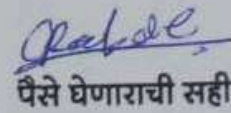 पैसे घेणाराची सही